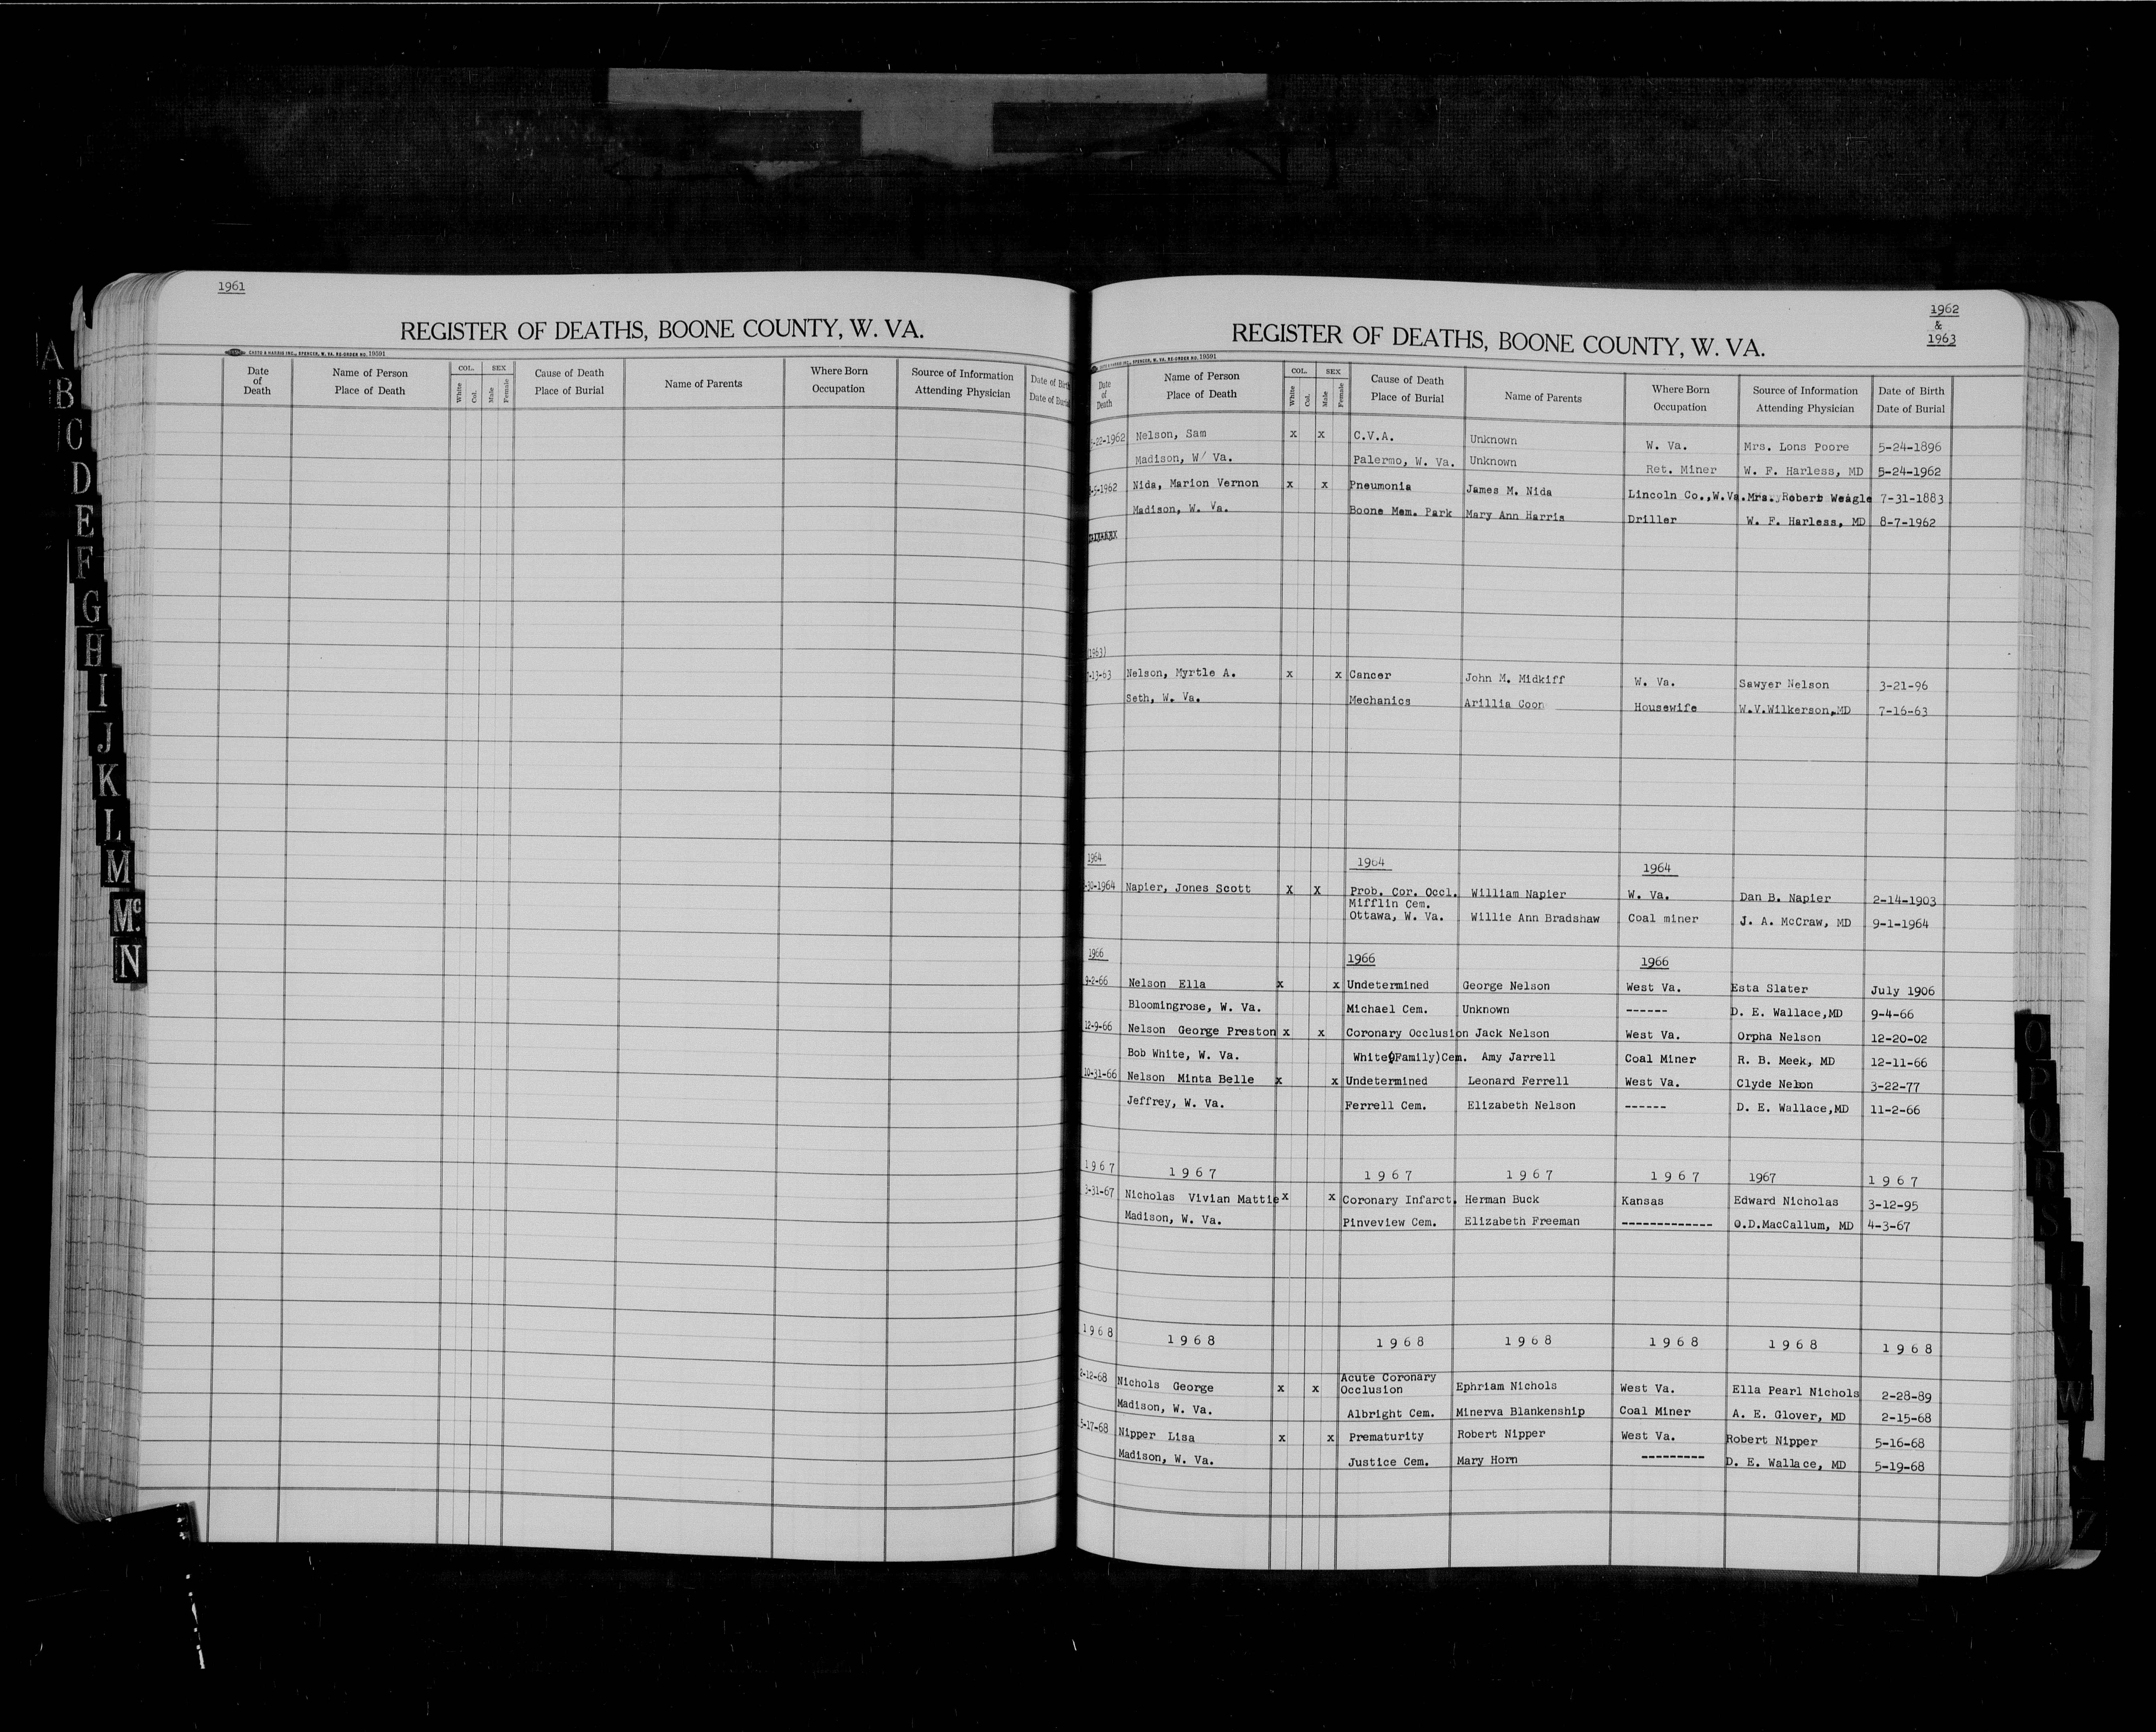 1961
REGISTER OF DEATHS, BOONE COUNTY, W. VA.
CASTO & HARRIS INC., SPENCER, W. VA. RE-ORDER NO. 19591
Date of Death
Name of Person Place of Death
COL. White Col.
SEX Male Female
Cause of Death Place of Burial
Name of Parents
Where Born Occupation
Source of Information Attending Physician
Date of Birth Date of Burial
A
B
C
D
E
F
G
H
I
J
K
L
M
Mc.
N
1962
&
1963
REGISTER OF DEATHS, BOONE COUNTY, W. VA.
CASTO & HARRIS INC., SPENCER, W. VA. RE-ORDER NO. 19591
Date of Death
Name of Person Place of Death
COL. White Col.
SEX Male Female
Cause of Death Place of Burial
Name of Parents
Where Born Occupation
Source of Information Attending Physician
Date of Birth Date of Burial
-22-1962 Nelson, Sam x x C.V.A. Unknown W. Va. Mrs. Lons Poore 5-24-1896
Madison, W/ Va. Palermo, W. Va. Unknown Ret. Miner W. F. Harless, MD 5-24-1962
-5-1962 Nida, Marion Vernon x x Pneumonia James M. Nida Lincoln Co.,W.Va. Mrs. Robert Weagle 7-31-1883
Madison, W. Va. Boone Mem. Park Mary Ann Harris Driller W. F. Harless, MD 8-7-1962
(1963)
7-13-63 Nelson, Myrtle A. x x Cancer John M. Midkiff W. Va. Sawyer Nelson 3-21-96
Seth, W. Va. Mechanics Arillia Coon Housewife W.V.Wilkerson,MD 7-16-63
1964 1964 1964
-30-1964 Napier, Jones Scott x x Prob. Cor. Occl. William Napier W. Va. Dan B. Napier 2-14-1903
Mifflin Cem.
Ottawa, W. Va. Willie Ann Bradshaw Coal miner J. A. McCraw, MD 9-1-1964
1966 1966 1966
9-2-66 Nelson Ella x x Undetermined George Nelson West Va. Esta Slater July 1906
Bloomingrose, W. Va. Michael Cem. Unknown ------ D. E. Wallace,MD 9-4-66
12-9-66 Nelson George Preston x x Coronary Occlusion Jack Nelson West Va. Orpha Nelson 12-20-02
Bob White, W. Va. White(Family)Cem. Amy Jarrell Coal Miner R. B. Meek, MD 12-11-66
10-31-66 Nelson Minta Belle x x Undetermined Leonard Ferrell West Va. Clyde Nelson 3-22-77
Jeffrey, W. Va. Ferrell Cem. Elizabeth Nelson ------ D. E. Wallace,MD 11-2-66
1967 1967 1967 1967 1967 1967 1967
3-31-67 Nicholas Vivian Mattie x x Coronary Infarct. Herman Buck Kansas Edward Nicholas 3-12-95
Madison, W. Va. Pinveview Cem. Elizabeth Freeman ------------- O.D.MacCallum, MD 4-3-67
1968 1968 1968 1968 1968 1968 1968
2-12-68 Nichols George x x Acute Coronary Occlusion Ephriam Nichols West Va. Ella Pearl Nichols 2-28-89
Madison, W. Va. Albright Cem. Minerva Blankenship Coal Miner A. E. Glover, MD 2-15-68
5-17-68 Nipper Lisa x x Prematurity Robert Nipper West Va. Robert Nipper 5-16-68
Madison, W. Va. Justice Cem. Mary Horn --------- D. E. Wallace, MD 5-19-68
O
P
Q
R
S
U
V
W
Z